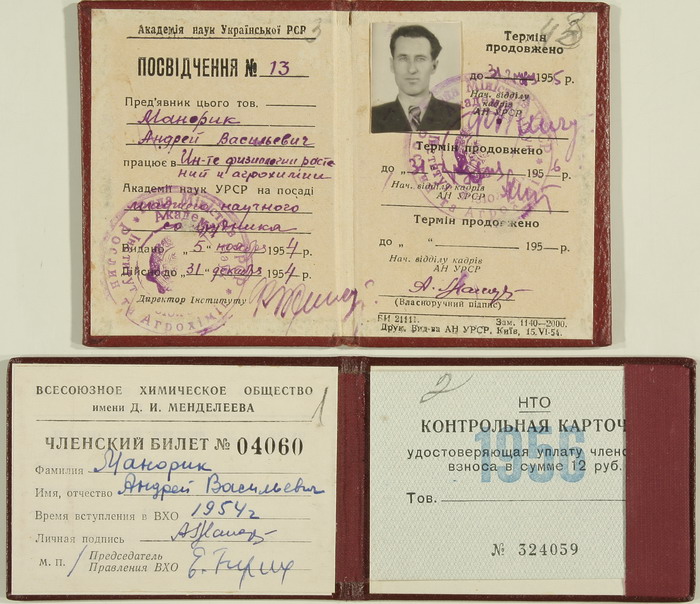 Академія наук Української РСР
3
ПОСВІДЧЕННЯ № 13
Пред'явник цього тов.
Манорик
Андрей Васильевич
працює в Ин-те физиологии расте
ний и агрохимии
Академії наук УРСР на посаді
младшего научного
сотрудника
Видано „5“ ноября 1954 р.
Дійсно до „31“ декабря 1954 р.
Директор Інституту
Термін
продовжено
до 31 1955 р.
Нач. відділу
кадрів
АН УРСР
Термін продовжено
до 31 1956 р.
Нач. відділу кадрів
АН УРСР
Термін продовжено
до „ “ 195 р.
Нач. відділу кадрів
АН УРСР
А. Манор
(Власноручний підпис)
БИ 24441. Зам. 1140—2000.
Друк. Вид-ва АН УРСР. Київ, 15.VI-54.
ВСЕСОЮЗНОЕ ХИМИЧЕСКОЕ ОБЩЕСТВО
имени Д. И. МЕНДЕЛЕЕВА
1
ЧЛЕНСКИЙ БИЛЕТ № 04060
Фамилия Манорик
Имя, отчество Андрей Васильевич
Время вступления в ВХО 1954 г
Личная подпись АМанор
М. П. Председатель
Правления ВХО
2
НТО
КОНТРОЛЬНАЯ КАРТОЧ
1956
удостоверяющая уплату член
взноса в сумме 12 руб.
Тов.
№ 324059